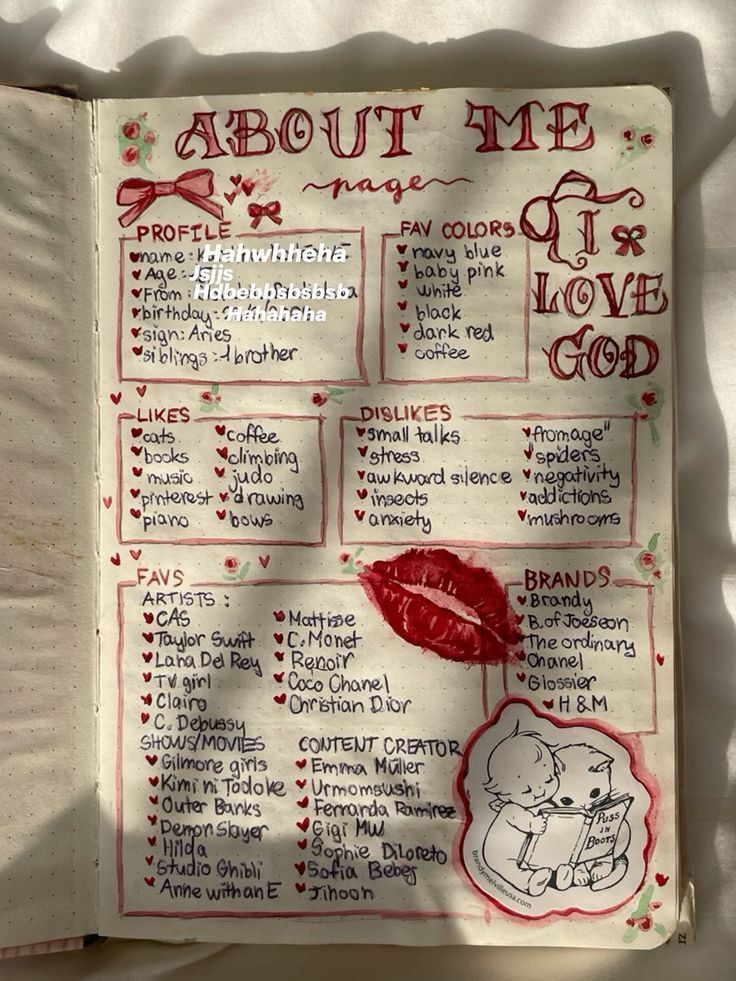 ABOUT ME
page
PROFILE
name:
Hahwhheha
Age:
Jsjjs
From
Hdbebbsbsbsb
birthday:
Hahahaha
sign: Aries
siblings: 1 brother
FAV COLORS
navy blue
baby pink
white
black
dark red
coffee
I
LOVE
GOD
LIKES
cats
books
music
pinterest
piano
coffee
climbing
judo
drawing
bows
DISLIKES
small talks
stress
awkward silence
insects
anxiety
"fromage"
spiders
negativity
addictions
mushrooms
FAVS
ARTISTS:
CAS
Taylor Swift
Lana Del Rey
TV girl
Clairo
C. Debussy
Mattisse
C. Monet
Renoir
Coco Chanel
Christian Dior
SHOWS/MOVIES
Gilmore girls
Kimi ni Todoke
Outer Banks
Demon Slayer
Hilda
Studio Ghibli
Anne with an E
CONTENT CREATOR
Emma Müller
Urmomsushi
Fernanda Ramirez
Gigi MW
Sophie DiLoreto
Sofia Bebes
Jihoon
BRANDS
Brandy
B. of Joeseon
The ordinary
Chanel
Glossier
H & M
PUSS
IN
BOOTS
brandymelvilleusa.com